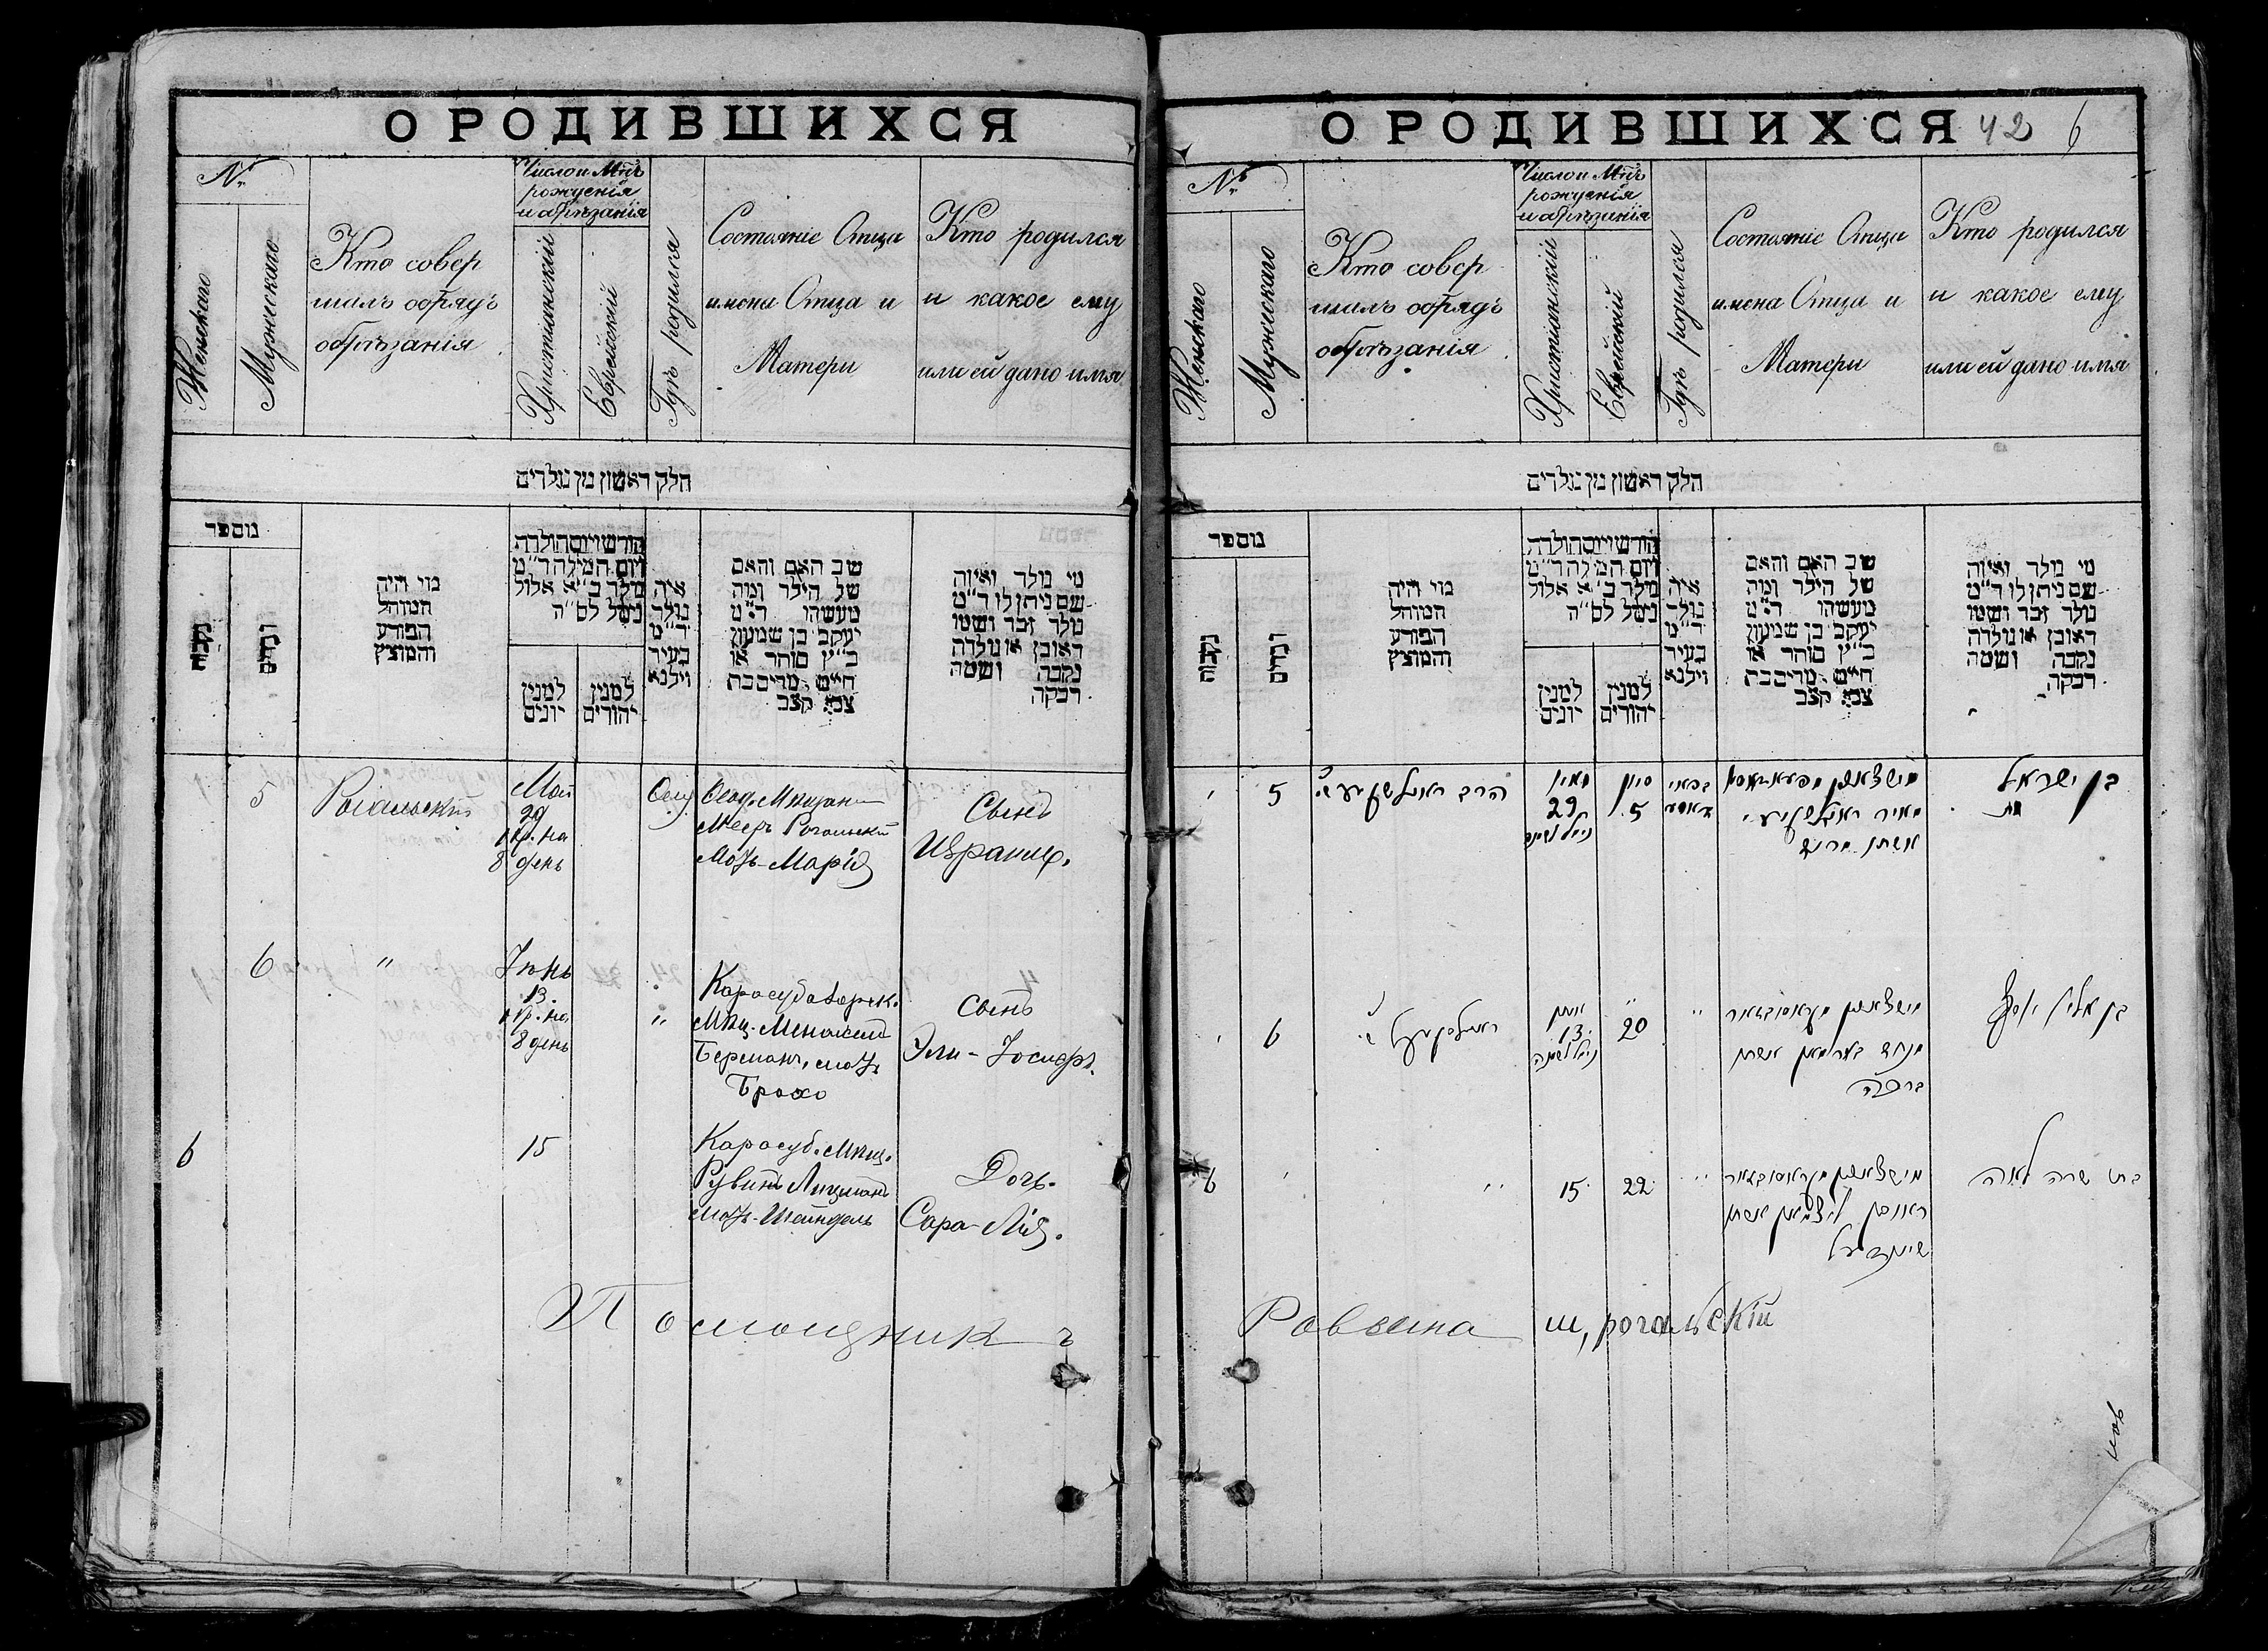 О РОДИВШИХСЯ
№
Женскаго
Мужескаго
Кто совер
шилъ обрядъ
обрѣзанія
Число и Мѣс.
рожденія
и обрѣзанія
Христіанскій
Еврейскій
Гдѣ родился
Состояніе Отца
имена Отца и
Матери
Кто родился
и какое ему
или ей дано имя
חלק ראשון מן נולדים
מספר
נקבות
זכרים
מי היה
המוהל
הפורע
והמוצץ
חודש ויום הולדת
ויום המילה ד״מ
נולד ב״א אלול
ניםל לס״ה
למנין
יונים
למנין
יהודים
איה
נולד
ד״מ
בעיר
וילנא
שם האב והאם
של הילד ומה
מעשהו ד״מ
יעקב בן שמעון
כ״ץ סוחר או
חייט מרים בת
צבי קצב
מי נולד ואיזה
שם ניתן לו ד״מ
נולד זכר ושמו
ראובן או נולדה
נקבה ושמה
רבקה
5
Рогальскій
Май
29
обр. на
8 день
Ѳеод. Мѣщан
Мееръ Рогальскій
Мать-Марія
Сынъ
Израиль.
6
"
Іюнь
13.
обр. на
8 день
"
Карасубазарск.
Мѣщ.
Берманъ, мать
Брахо
Сынъ
Эли-Іосифъ.
6
15
Карасуб. Мѣщ.
Рувинъ Лицманъ
мать-Шейндель
Дочь.
Сара-Лія.
Помощникъ
О РОДИВШИХСЯ 42 6
№
Женскаго
Мужескаго
Кто совер
шилъ обрядъ
обрѣзанія
Число и Мѣс.
рожденія
и обрѣзанія
Христіанскій
Еврейскій
Гдѣ родился
Состояніе Отца
имена Отца и
Матери
Кто родился
и какое ему
или ей дано имя
חלק ראשון מן נולדים
מספר
נקבות
זכרים
מי היה
המוהל
הפורע
והמוצץ
חודש ויום הולדת
ויום המילה ד״מ
נולד ב״א אלול
ניםל לס״ה
למנין
יונים
למנין
יהודים
איה
נולד
ד״מ
בעיר
וילנא
שם האב והאם
של הילד ומה
מעשהו ד״מ
יעקב בן שמעון
כ״ץ סוחר או
חייט מרים בת
צבי קצב
מי נולד ואיזה
שם ניתן לו ד״מ
נולד זכר ושמו
ראובן או נולדה
נקבה ושמה
רבקה
5
הרב
מאי
29
סיון
5
מאיר
אשתו
בן ישראל
6
יוני
13
נימל לשמנה
20
"
ברכה
בן אלי יוסף
6
"
15
22
"
ראובן ליצמאן אשתו
שיינדעל
בת שרה לאה
Раввина Ш, Рогальскій